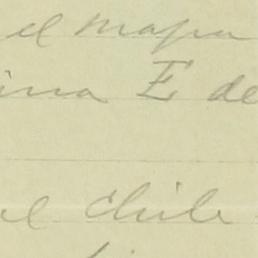 el mapa
ina E de
al Chile